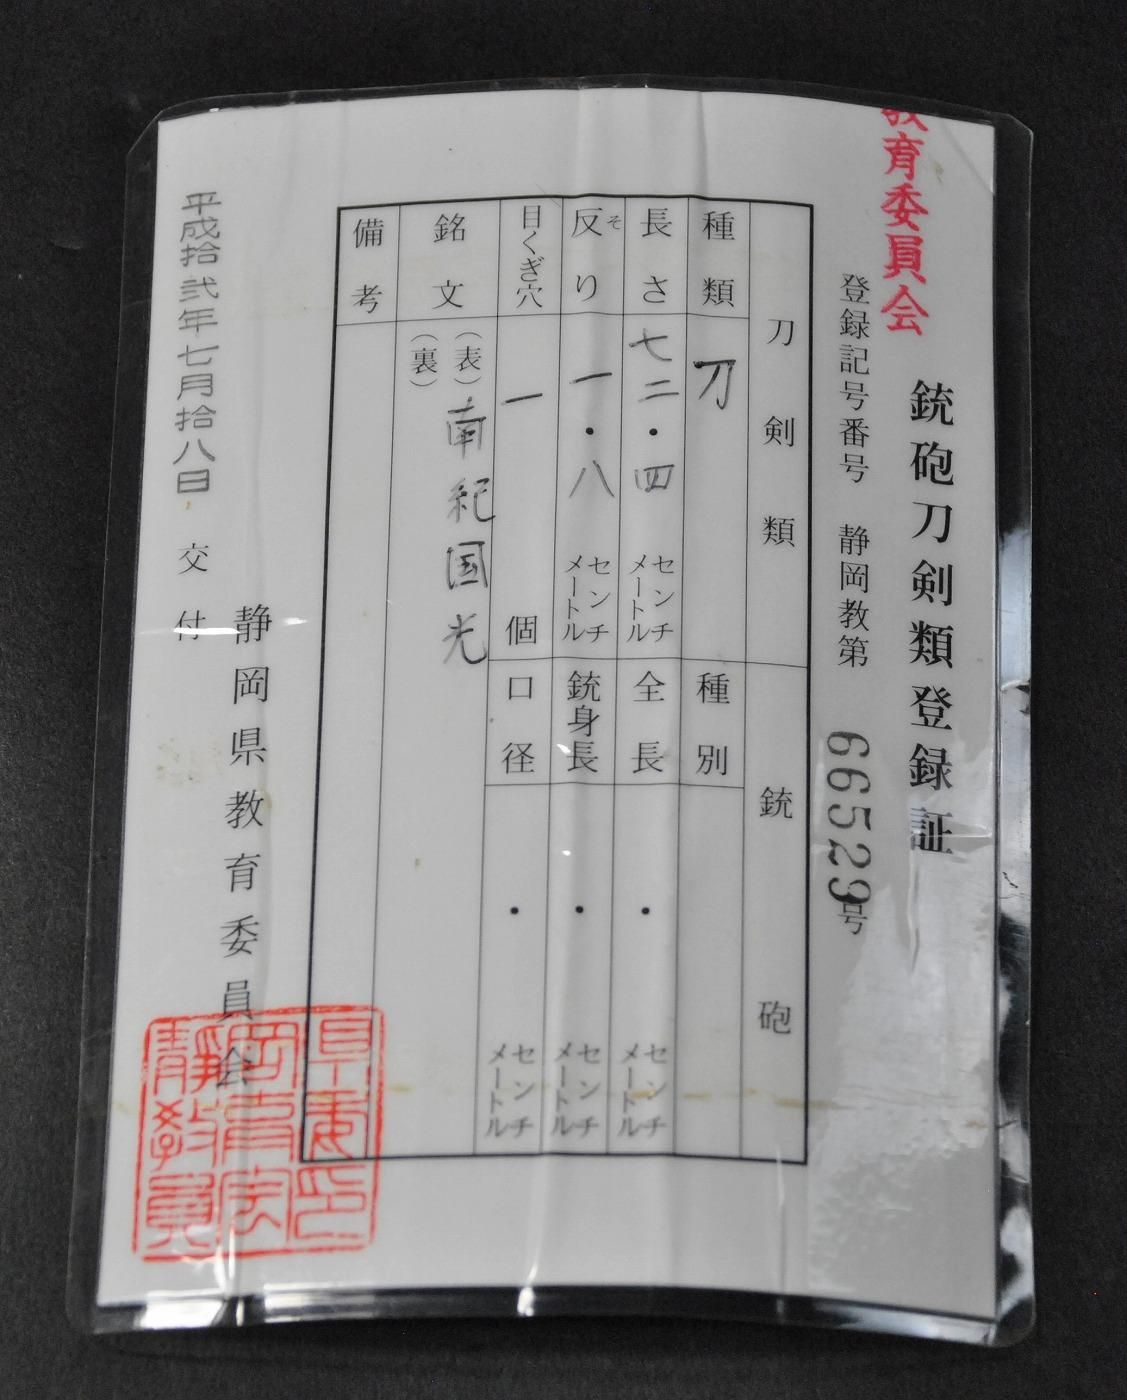 教育委員会
銃砲刀剣類登録証
登録記号番号 静岡教第 66529号
刀剣類
銃砲
種類 刀
種別
長さ 七二・四 センチメートル
全長 ・ センチメートル
反り そ 一・八 センチメートル
銃身長 ・ センチメートル
目くぎ穴 一 個
口径 ・ センチメートル
銘文 (表) 南紀国光
(裏)
備考
静岡県教育委員会
平成拾弐年七月拾八日 交付
静岡県教育委員会印